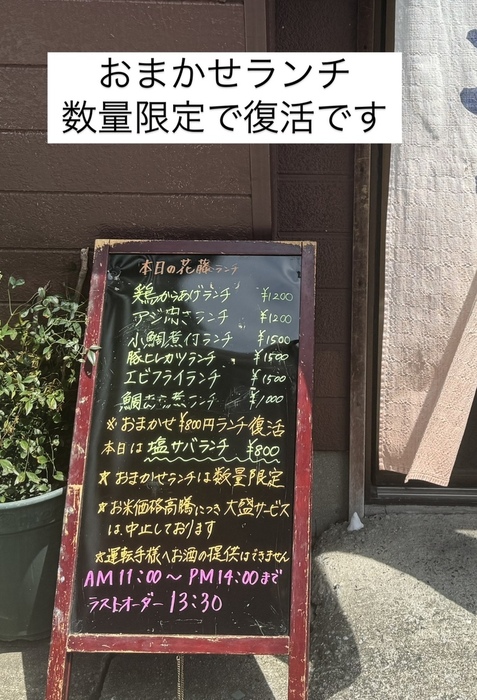 おまかせランチ
数量限定で復活です
本日の花藤ランチ
鶏からあげランチ ¥1200
アジ ランチ ¥1200
小鯛煮付ランチ ¥1500
豚ヒレカツランチ ¥1500
エビフライランチ ¥1500
鯛 ランチ ¥1000
※おまかせ¥800円ランチ復活
本日は塩サバランチ ¥800
★おまかせランチは数量限定
★お米価格高騰につき大盛サービス
は、中止しております
※運転手様へお酒の提供はできません
AM11:00〜PM14:00まで
ラストオーダー13:30